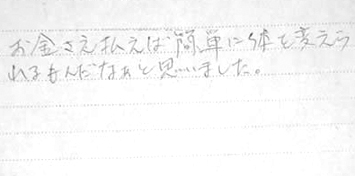 お金さえ払えば簡単に体を変えら
れるもんだなぁと思いました。